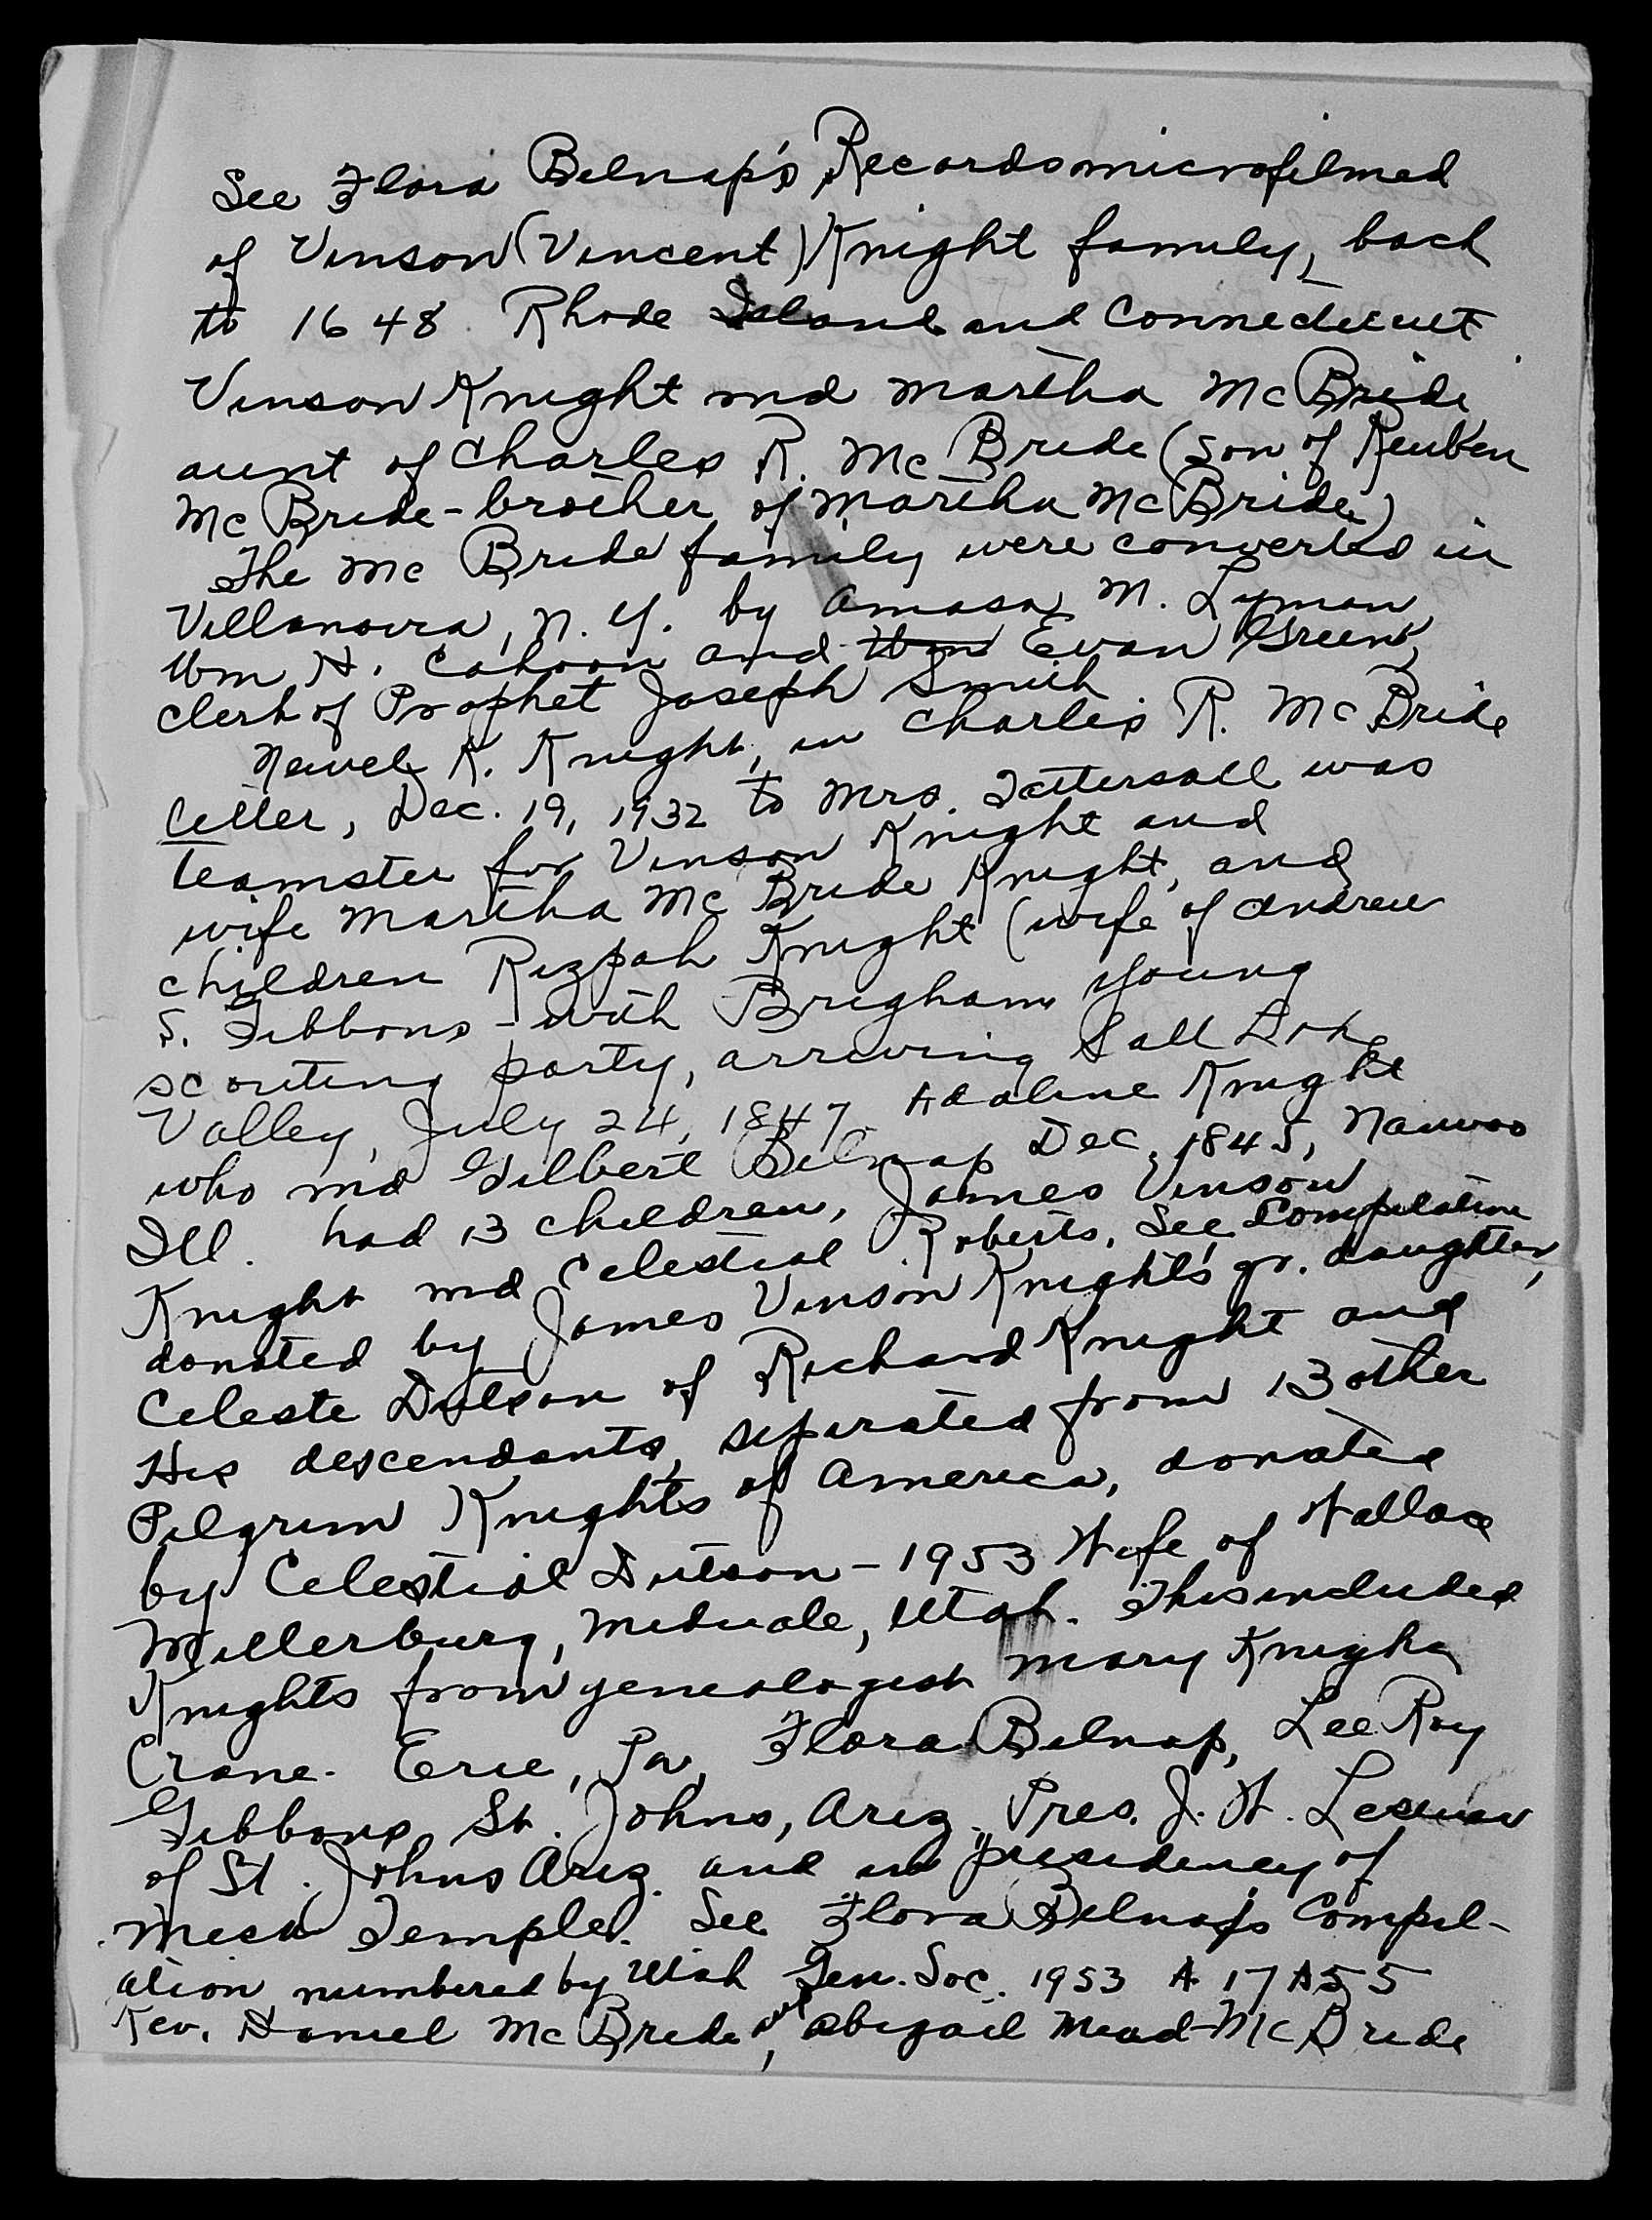 See Flora Belnap's Records microfilmed
of Vinson (Vincent) Knight family, back
to 1648 Rhode Island and Connecticut
Vinson Knight md Martha McBride
aunt of Charles R. McBride (son of Reuben
McBride - brother of Martha McBride)
The McBride family were converted in
Villanovia, N.Y. by Amasa M. Lyman
Wm H. Cahoon and Evan Green,
clerk of Prophet Joseph Smith
Newel K. Knight, in Charles R. McBride
letter, Dec. 19, 1932 to Mrs. Tattersall was
teamster for Vinson Knight and
wife Martha McBride Knight, and
children Rizpah Knight (wife of Andrew
S. Gibbons - with Brigham Young
scouting party, arriving Salt Lake
Valley, July 24, 1847 Adaline Knight
who md Gilbert Belnap Dec. 1845, Nauvoo
Ill. had 13 children, James Vinson
Knight md Celestial Roberts, See Compilation
donated by James Vinson Knight's gr. daughter,
Celeste Dutson of Richard Knight and
His descendants, separated from 13 other
Pilgrim Knights of America, donated
by Celestial Dutson - 1953 Wife of Wallace
Millerburg, Midvale, Utah. This included
Knights from genealogist Mary Knight
Crane. Erie, Pa, Flora Belnap, LeeRoy
Gibbons St. Johns, Ariz, Pres. J. W. Lesueur
of St. Johns Ariz. and in presidency of
Mesa Temple. See Flora Belnap's Compil-
ation numbered by Utah Gen. Soc. 1953 A 17 A55
Rev. Daniel McBride, and Abigail Mead McBride